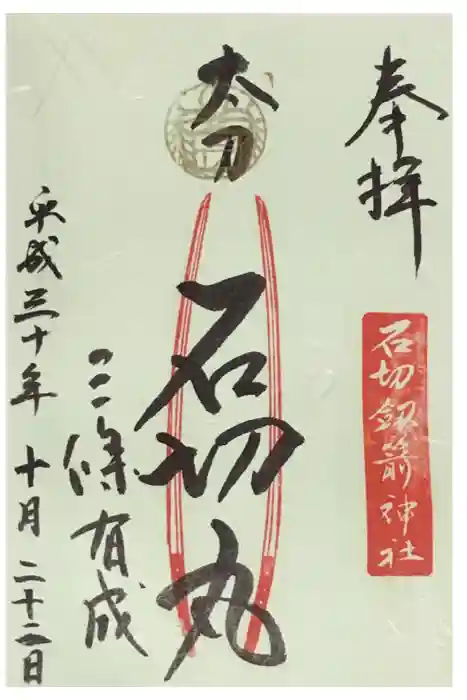 奉拝
石切劔箭神社
太刀
石切丸
三條有成
平成三十年十月二十二日